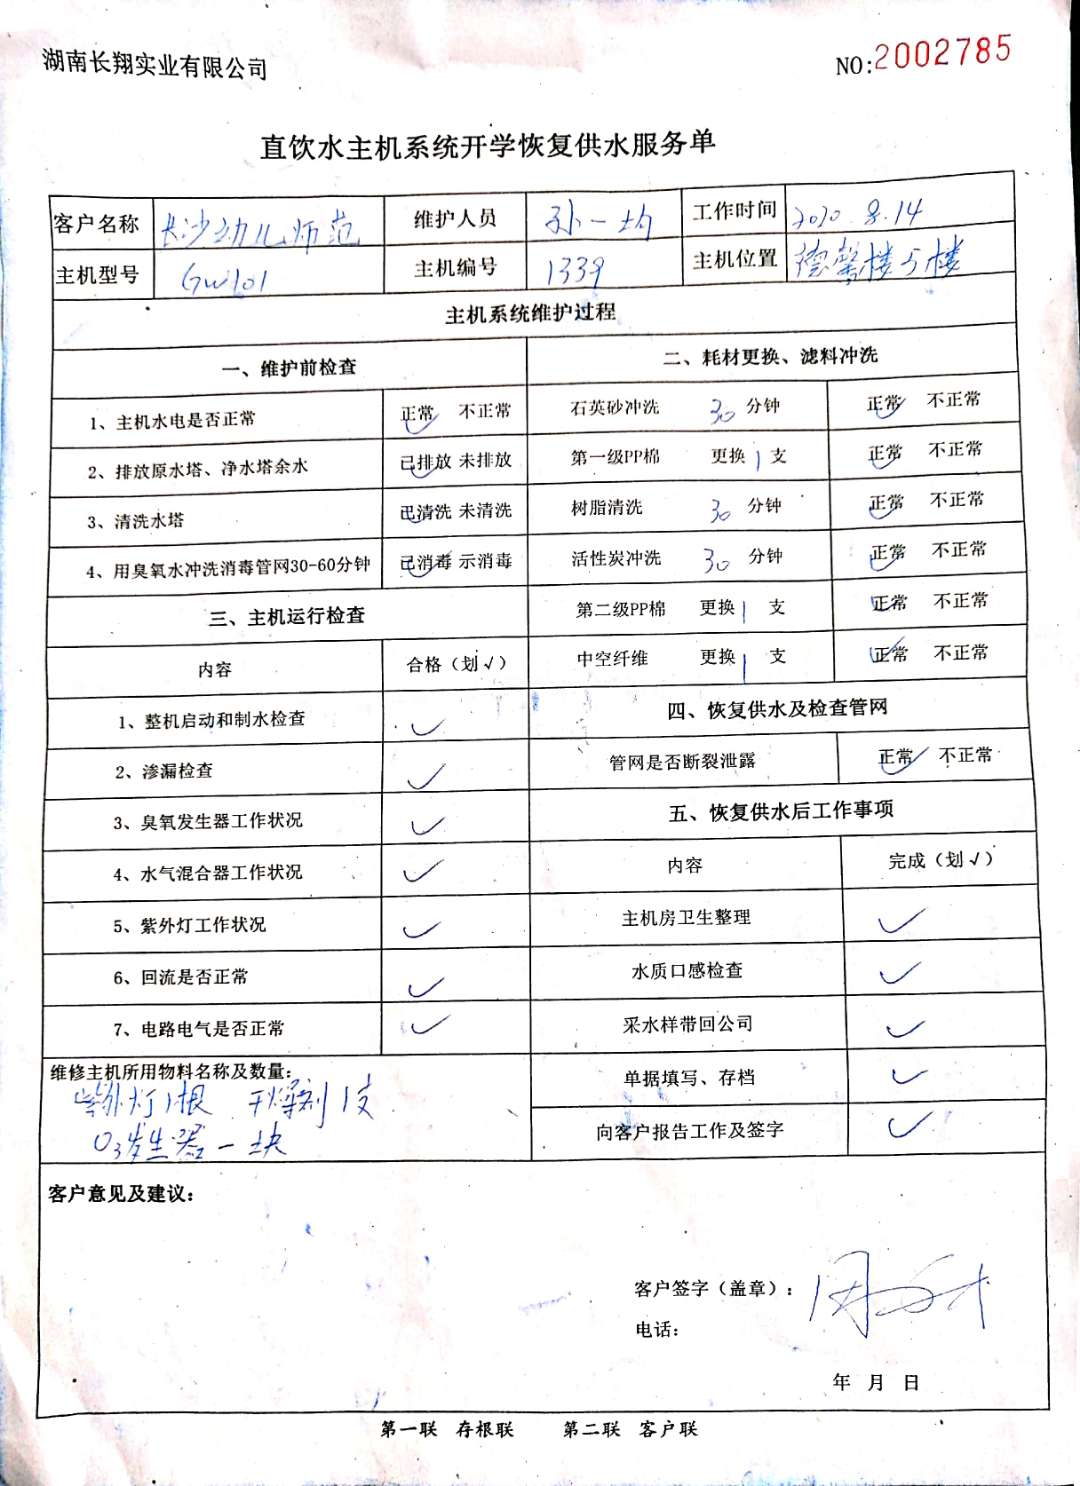 湖南长翔实业有限公司
NO:2002785
直饮水主机系统开学恢复供水服务单
客户名称 长沙幼儿师范 维护人员 孙一均 工作时间 2020.8.14
主机型号 GW101 主机编号 1339 主机位置 德馨楼5楼
主机系统维护过程
一、维护前检查 二、耗材更换、滤料冲洗
1、主机水电是否正常 正常✓ 不正常 石英砂冲洗 30 分钟 正常✓ 不正常
2、排放原水塔、净水塔余水 已排放✓ 未排放 第一级PP棉 更换 1 支 正常✓ 不正常
3、清洗水塔 已清洗✓ 未清洗 树脂清洗 30 分钟 正常✓ 不正常
4、用臭氧水冲洗消毒管网30-60分钟 已消毒✓ 示消毒 活性炭冲洗 30 分钟 正常✓ 不正常
三、主机运行检查 第二级PP棉 更换 1 支 正常✓ 不正常
内容 合格（划√） 中空纤维 更换 1 支 正常✓ 不正常
1、整机启动和制水检查 ✓ 四、恢复供水及检查管网
2、渗漏检查 ✓ 管网是否断裂泄露 正常✓ 不正常
3、臭氧发生器工作状况 ✓ 五、恢复供水后工作事项
4、水气混合器工作状况 ✓ 内容 完成（划√）
5、紫外灯工作状况 ✓ 主机房卫生整理 ✓
6、回流是否正常 ✓ 水质口感检查 ✓
7、电路电气是否正常 ✓ 采水样带回公司 ✓
维修主机所用物料名称及数量： 单据填写、存档 ✓
紫外灯1根 干燥剂1支
O3发生器一块 向客户报告工作及签字 ✓
客户意见及建议：
客户签字（盖章）：
电话：
年 月 日
第一联 存根联 第二联 客户联